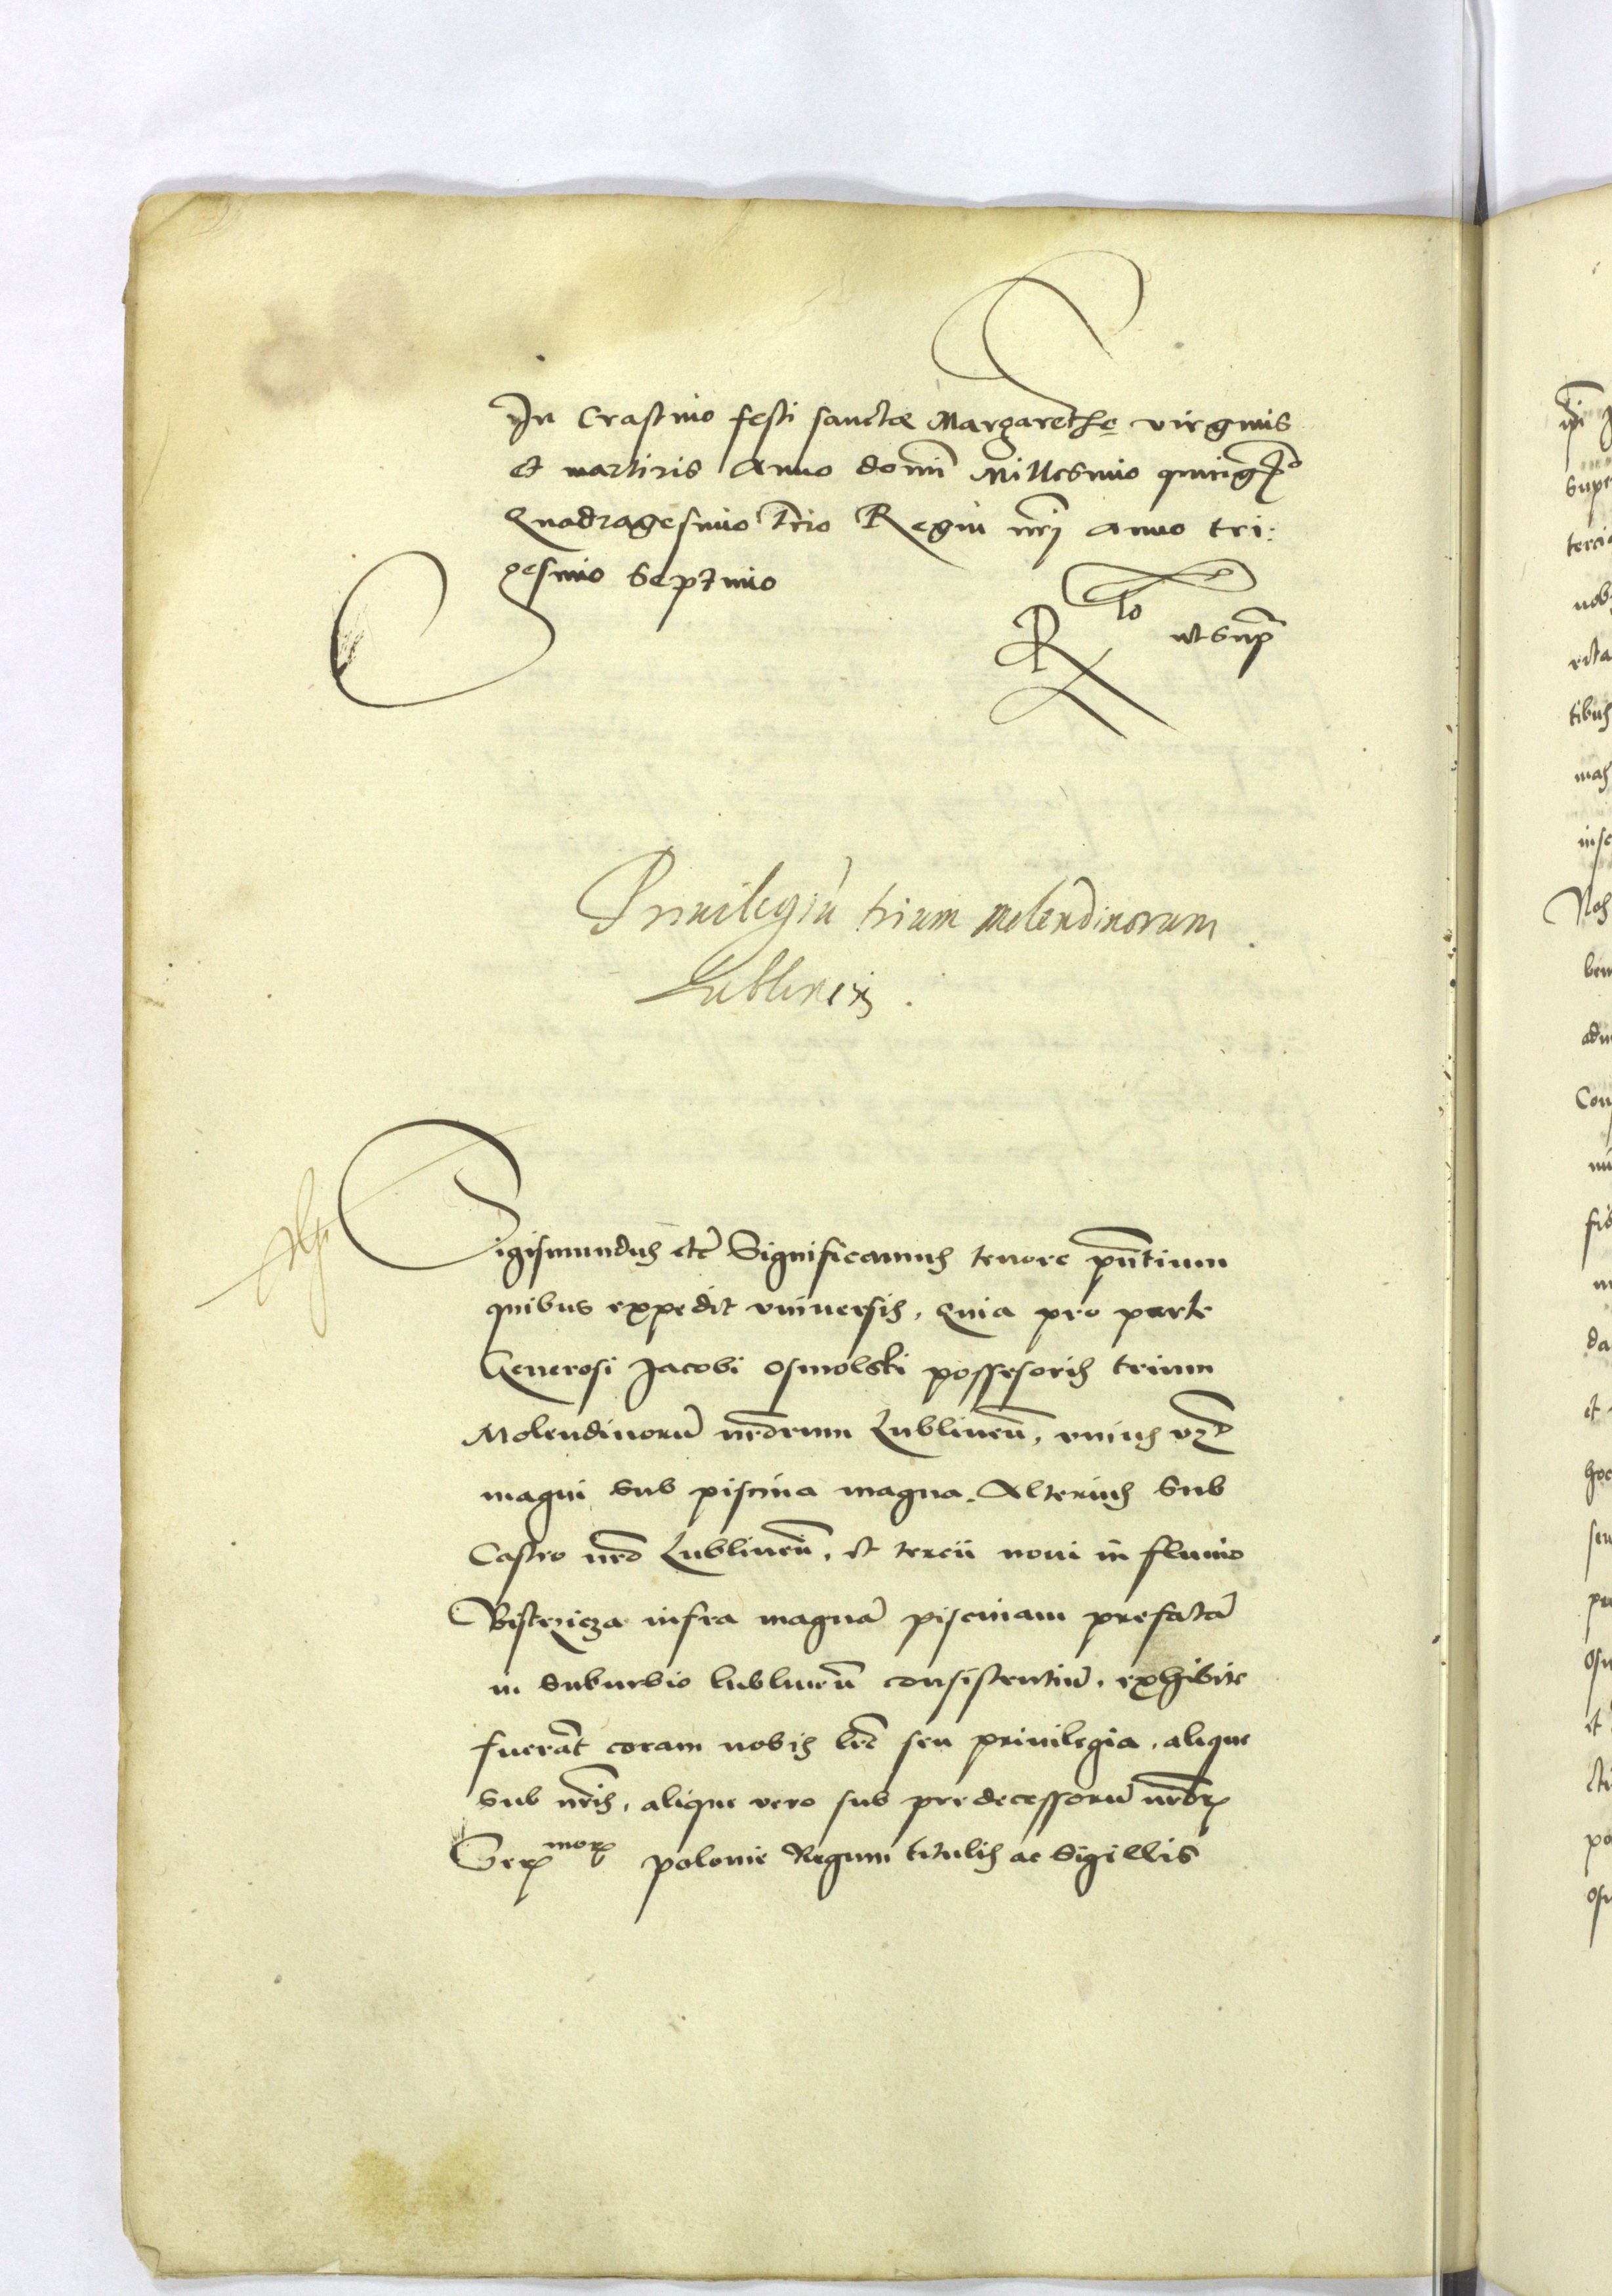 In Crastino festi sanctae Margarethę virginis
et martiris Anno domī Millesimo quīngẽ͞to
Quadragesimo tr̄cio Regni nr̄j anno tri:
gesimo Septimo
R̄lo ut sup̄
Priuilegiū trium molendinorum
Lublinen̄
Sigismundus etc̄ Significamus tenore pn̄tium
quibus expedit vniuersis, quia pro parte
Generosi Jacobi osmolski possessoris trium
Molendinorū nr̄orum Lublinen̄, vnius vz
magni sub piscina magna. Alterius sub
Castro nr̄o Lublinen̄, et tercii noui in fluuio
Bistrzicza infra magnā piscinam prefatā
in suburbio lublinen̄ consistentiū, exhibite
fuerāt coram nobis lr̄e seu priuilegia, alique
sub nr̄is, alique vero sub predecessorū nr̄orꝝ
Serᵐᵒʳꝝ polonie Regum titulis ac Sigillis